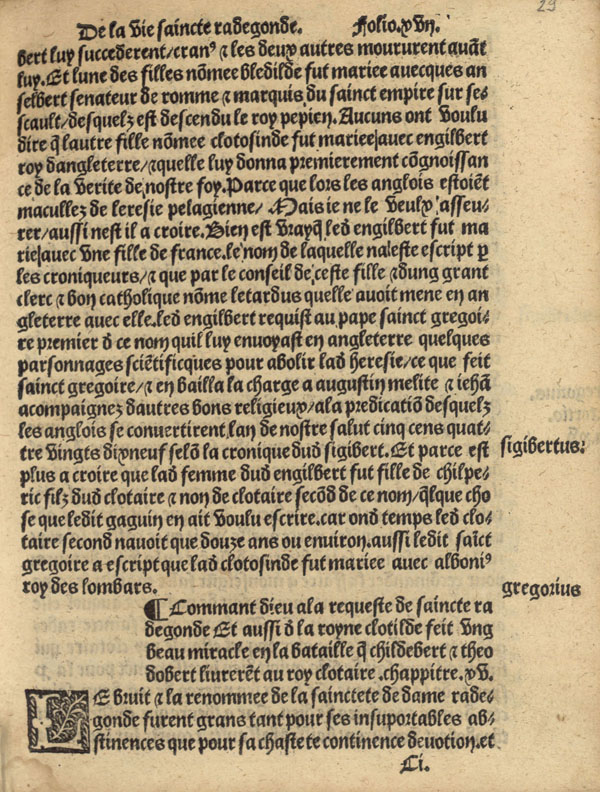 29
De la vie saincte radegonde. Folio.xvii.
bert luy succederent/cranꝰ ⁊ les deux autres moururent quãt
luy. Et lune des filles nõmee bledilde fut mariee auecques an
selbert senateur de romme ⁊ marquis du sainct empire sur se-
scault/desquelz est descendu le roy pepien. Aucuns ont voulu
dire q̃ lautre fille nõmee clotosinde fut mariee auec engilbert
roy dangleterre/⁊ quelle luy donna premierement cõgnoissan
ce de la verite de nostre foy. Parce que lors les anglois estoiẽt
macullez de leresie pelagienne/ Mais ie ne le veulx asseu-
rer/aussi nest il a croire. Bien est vray q̃ led engilbert fut ma
rie auec vne fille de france. le nom de laquelle na este escript ꝑ
les croniqueurs/⁊ que par le conseil de ceste fille ⁊ dung grant
clerc ⁊ bon catholique nõme letardus quelle auoit mene en an
gleterre auec elle. led engilbert requist au pape sainct gregoi-
re premier d ce nom quil luy enuoyast en angleterre quelques
parsonnages sciẽtificques pour abolir lad heresie/ce que feit
sainct gregoire/⁊ en bailla la charge a augustin melite ⁊ iehã
acompaignez dautres bons religieux/a la predicatiõ desquelz
les anglois se conuertirent lan de nostre salut cinq cens quat-
tre vingts dixneuf selõ la cronique dud sigibert. Et parce est
plus a croire que lad femme dud engilbert fut fille de chilpe-
ric filz dud clotaire ⁊ non de clotaire secõd de ce nom/q̃lque cho
se que ledit gaguin en ait voulu escrire. car ond temps led clo-
taire second nauoit que douze ans ou enuiron. aussi ledit saĩct
gregoire a escript que lad clotosinde fut mariee auec alboniꝰ
roy des lombars.
sigibertus:
gregorius
¶ Commant dieu a la requeste de saincte ra
degonde Et aussi d la royne clotilde feit vng
beau miracle en la bataille q̃ childebert ⁊ theo
dobert liurerẽt au roy clotaire. chappitre. xv.
LE bruit ⁊ la renommee de la sainctete de dame rade-
gonde furent grans tant pour ses insuportables ab-
stinences que pour sa chastete continence deuotion. et
Ci.